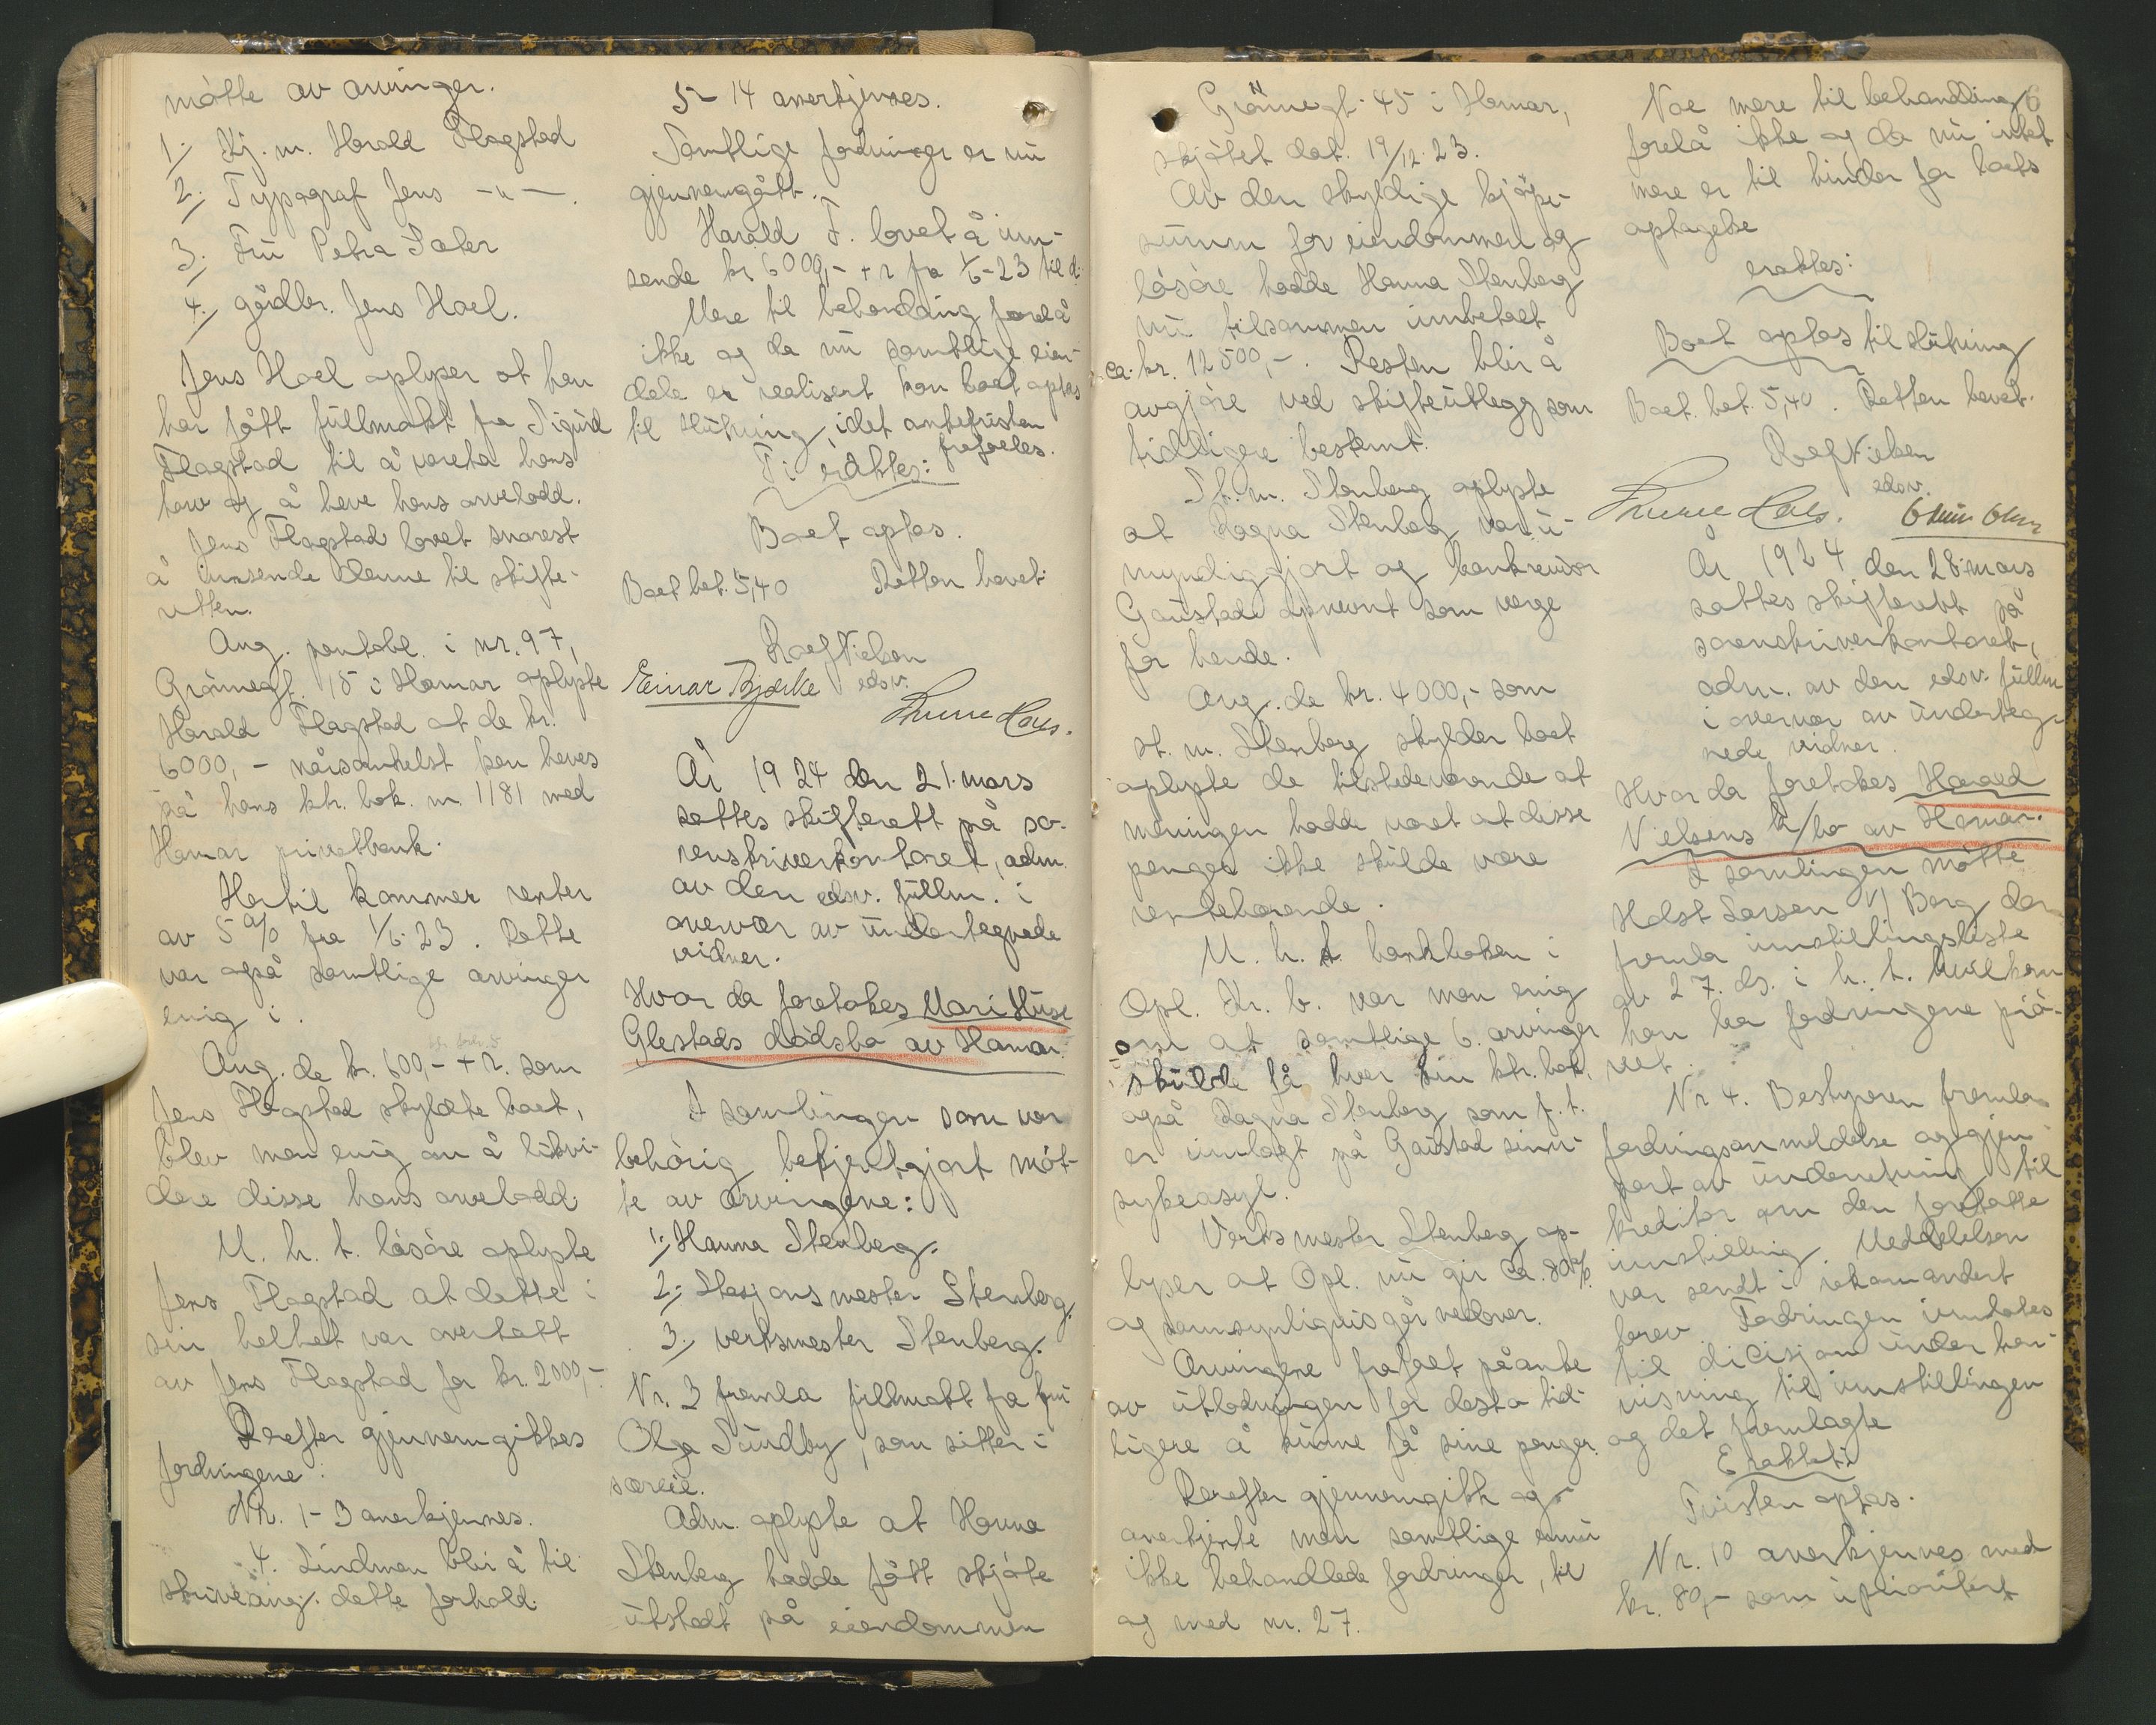 møtte av arvinger.
1. Kj. m. Harald Flagstad
2. Typograf Jens -"-.
3. Frü Petra Sæter
4. gårdbr. Jens Hoel.
Jens Hoel oplyser at han
har fått füllmakt fra Sigürd
Flagstad til å vareta hans
tarv og å heve hans arvelodd.
Jens Flagstad lovet snarest
å innsende denne til skifte-
retten.
Ang. pantobl. i nr. 97,
Grønnegt. 15 i Hamar oplyste
Harald Flagstad at de kr.
6000,- nårsomhelst kan heves
på hans ktr. bok nr. 1181 med
Hamar privatbank.
Hertil kommer renter
av 5% fra 1/6-23. Dette
var også samtlige arvinger
enig i.
Ang. de kr. 600,- + r. som
Jens Flagstad skyldte boet,
blev man enig om å likvi-
dere disse hans arvelodd.
M. h. t. løsøre oplyste
Jens Flagstad at dette i
sin helhet var overtatt
av Jens Flagstad for kr. 2000,-.
Derefter gjennemgikkes
fordringene:
Nr. 1-3 anerkjennes.
" 4. Lindman blir å til-
skrive ang. dette forhold.
5-14 anerkjennes.
Samtlige fordringer er nü
gjennemgått.
Harald F. lovet å inn-
sende kr 6000,- + r fra 1/6-23 til d.
Mere til behandling forelå
ikke og da nü samtlige eien-
dele er realisert kan boet optas
til slütning, idet ankefristen
frafaltes.
Ti eraktes:
Boet optas.
Boet bet. 5,40 Retten hevet.
Roef Nielsen
edsv.
Einar Bjerke
År 1924 den 21. mars
sattes skifterett på so-
renskriverkontoret, adm.
av den edsv. füllm. i
overvær av ündertegnede
vidner.
Hvor da foretokes Mari Hüse
Glestads dødsbo av Hamar.
I samlingen som var
behørig bekjentgjort møt-
te av arvingene:
1. Hanna Stenberg.
2. Stasjonsmester Stenberg.
3. verksmester Stenberg.
Nr. 3 fremla füllmakt fra frü
Olga Sündby, som sitter i
særeie.
Adm. oplyste at Hanna
Stenberg hadde fått skjøte
ütstedt på eiendommen
Grønnegt. 45 i Hamar,
skjøtet dat. 19/12-23.
Av den skyldige kjøpe-
sümm for eiendommen og
løsøre hadde Hanna Stenberg
nü tilsammen innbetalt
ca. kr. 12 500,-. Resten blir å
avgjøre ved skifteütlegg som
tidligere bestemt.
St. m. Stenberg oplyste
at Ragna Stenberg var ü-
myndiggjort og bankrevisor
Gaüstad opnevnt som verge
for hende.
Ang. de kr. 4000,- som
st. m. Stenberg skylder boet
oplyste de tilstedeværende at
meningen hadde været at disse
penger ikke skülde være
rentebærende.
M. h. t. bankboken i
Opl. Kr. b. var man enig
om at samtlige 6 arvinger
skülde få hver sin ktr. bok,
også Ragna Stenberg som f. t.
er innlagt på Gaüstad sinn-
sykeasyl.
Verksmester Stenberg op-
lyser at Opl. nü gir ca. 80%.
og sannsynligvis går nedover.
Arvingene frafalt påanke
av ütlodningen for desto tid-
ligere å künne få sine penger.
Derefter gjennemgikk og
anerkjente man samtlige ennü
ikke behandlede fordringer, til
og med nr. 27.
6
Noe mere til behandling
forelå ikke og da nü intet
mere er til hinder for boets
optagelse
eraktes:
Boet optas til slütning
Boet bet. 5,40. Retten hevet.
Roef Nielsen
edsv.
År 1924 den 28. mars
sattes skifterett på
sorenskriverkontoret,
adm. av den edsv. füllm
i overvær av ünderteg-
nede vidner.
Hvor da foretokes Harald
Nielsens k/bo av Hamar.
I samlingen møtte
Holst Larsen v/ Berg der
fremla innstillingsliste
av 27. ds. i h. t. hvilken
han har fordringene prø-
vet.
Nr 4. Bestyreren fremla
fordringsanmeldelse og gjen-
part av ünderretning til
kreditor om den foretatte
innstilling. Meddelelsen
var sendt i rekomandert
brev. Fordringen inntokes
til dicisjon ünder hen-
visning til innstillingen
og det fremlagte
Eraktet:
Tvisten optas.
Nr. 10 anerkjennes med
kr. 80,- som üprioritert